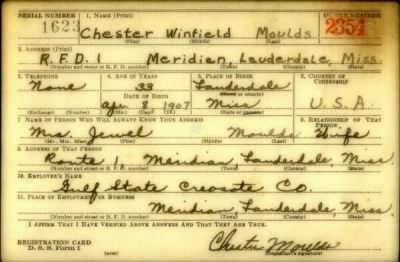 SERIAL NUMBER 1. NAME (Print) ORDER NUMBER
1623 Chester Winfield Moulds 2354
(First) (Middle) (Last)
2. ADDRESS (Print)
R.F.D. 1 Meridian, Lauderdale, Miss.
(Number and street or R. F. D. number) (Town) (County) (State)
3. TELEPHONE 4. AGE IN YEARS 5. PLACE OF BIRTH 6. COUNTRY OF CITIZENSHIP
None 33 Lauderdale
DATE OF BIRTH (Town or county)
Apr 8 1907 Miss U.S.A.
(Exchange) (Number) (Mo.) (Day) (Yr.) (State or country)
7. NAME OF PERSON WHO WILL ALWAYS KNOW YOUR ADDRESS 8. RELATIONSHIP OF THAT PERSON
Mrs. Jewel Moulds Wife
(Mr., Mrs., Miss) (First) (Middle) (Last)
9. ADDRESS OF THAT PERSON
Route 1, Meridian Lauderdale, Miss.
(Number and street or R. F. D. number) (Town) (County) (State)
10. EMPLOYER'S NAME
Gulf State Creosote Co.
11. PLACE OF EMPLOYMENT OR BUSINESS
Meridian, Lauderdale, Miss.
(Number and street or R. F. D. number) (Town) (County) (State)
I AFFIRM THAT I HAVE VERIFIED ABOVE ANSWERS AND THAT THEY ARE TRUE.
REGISTRATION CARD
D. S. S. Form 1 Chester Moulds
(Registrant's signature)